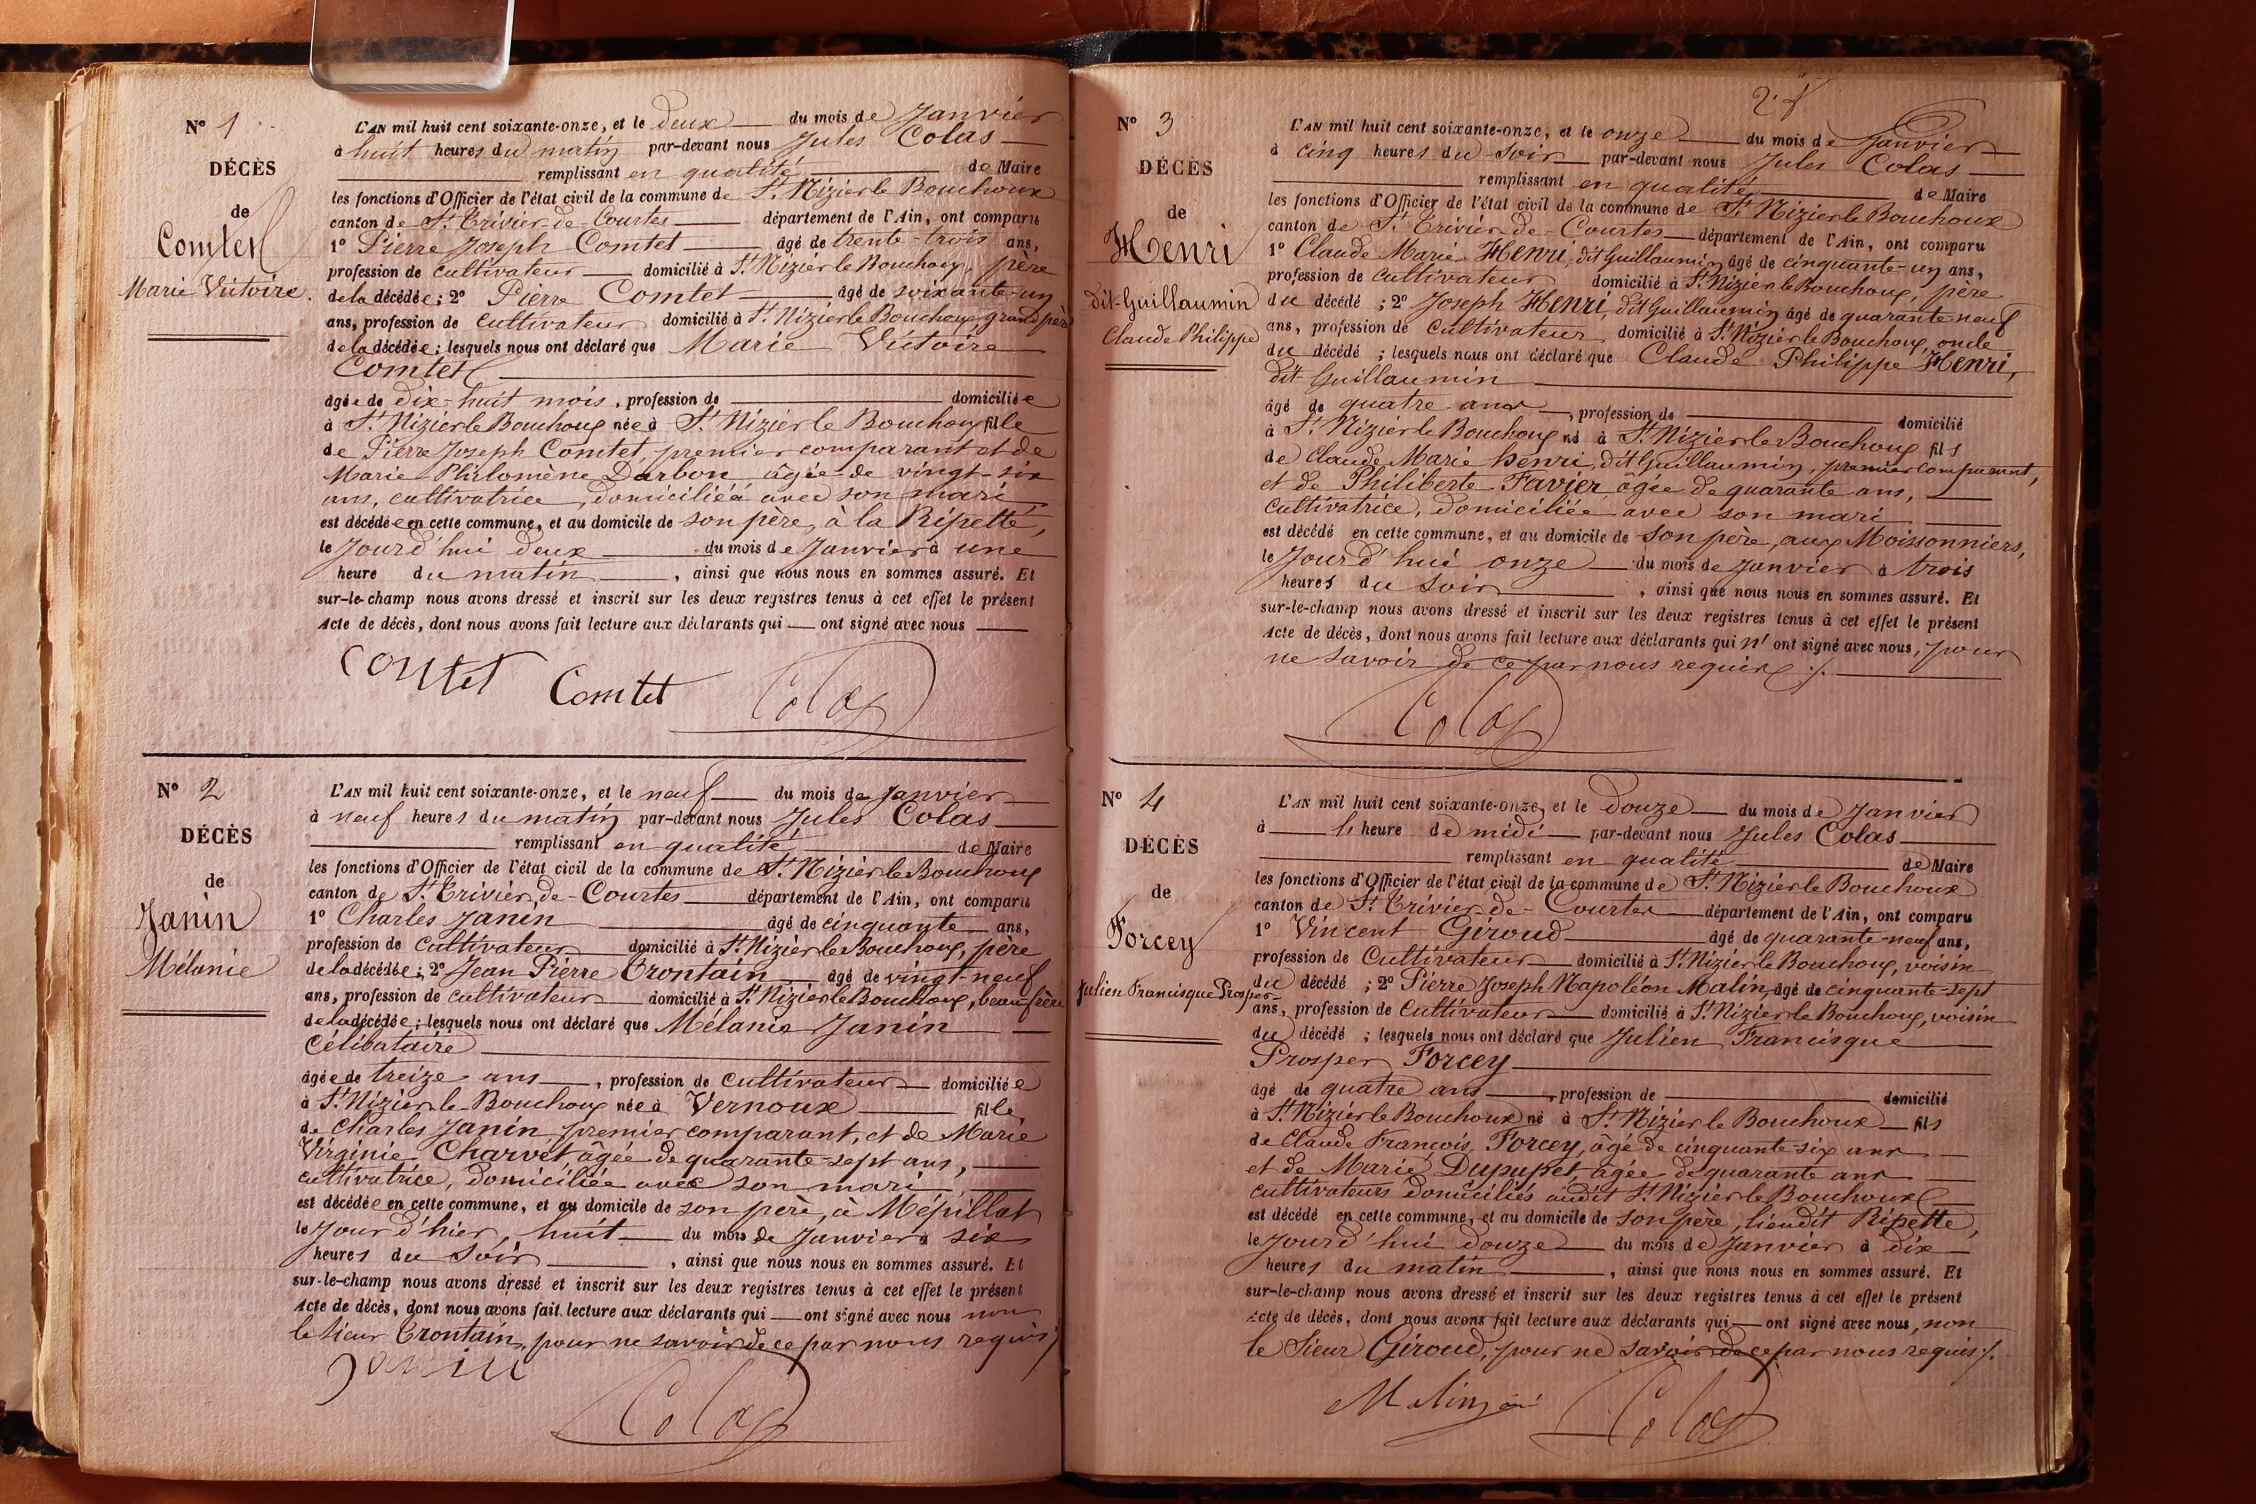 Nº 1
DÉCÈS
de
Comtet
Marie Victoire.
L'AN mil huit cent soixante-onze, et le deux du mois de Janvier
à huit heures du matin par-devant nous Jules Colas
remplissant en qualité de Maire
les fonctions d'Officier de l'état civil de la commune de St Nizier le Bouchoux
canton de St Trivier-de-Courtes département de l'Ain, ont comparu
1º Pierre Joseph Comtet âgé de trente-trois ans,
profession de cultivateur domicilié à St Nizier le Bouchoux, père
de la décédée; 2º Pierre Comtet âgé de soixante-un
ans, profession de cultivateur domicilié à St Nizier le Bouchoux grand père
de la décédée; lesquels nous ont déclaré que Marie Victoire
Comtet
âgée de dix-huit mois, profession de domiciliée
à St Nizier le Bouchoux née à St Nizier le Bouchoux fille
de Pierre Joseph Comtet, premier comparant et de
Marie Philomène Darbon âgée de vingt-six
ans, cultivatrice, domiciliée avec son mari
est décédée en cette commune, et au domicile de son père, à la Répette,
le Jourd'hui deux du mois de Janvier à une
heure du matin, ainsi que nous nous en sommes assuré. Et
sur-le-champ nous avons dressé et inscrit sur les deux registres tenus à cet effet le présent
Acte de décès, dont nous avons fait lecture aux déclarants qui ont signé avec nous
Contet Comtet Colas
Nº 2
DÉCÈS
de
Janin
Mélanie
L'AN mil huit cent soixante-onze, et le neuf du mois de Janvier
à neuf heures du matin par-devant nous Jules Colas
remplissant en qualité de Maire
les fonctions d'Officier de l'état civil de la commune de St Nizier le Bouchoux
canton de St Trivier-de-Courtes département de l'Ain, ont comparu
1º Charles Janin âgé de cinquante ans,
profession de cultivateur domicilié à St Nizier le Bouchoux, père
de la décédée; 2º Jean Pierre Crontain âgé de vingt-neuf
ans, profession de cultivateur domicilié à St Nizier le Bouchoux, beau frère
de la décédée; lesquels nous ont déclaré que Mélanie Janin
Célibataire
âgée de treize ans, profession de cultivateur domiciliée
à St Nizier le Bouchoux née à Vernoux fille
de Charles Janin premier comparant, et de Marie
Virginie Charvet âgée de quarante-sept ans,
cultivatrice, domiciliée avec son mari,
est décédée en cette commune, et au domicile de son père, à Mépillat
le Jour d'hier, huit du mois de Janvier à six
heures du soir, ainsi que nous nous en sommes assuré. Et
sur-le-champ nous avons dressé et inscrit sur les deux registres tenus à cet effet le présent
Acte de décès, dont nous avons fait lecture aux déclarants qui ont signé avec nous non
le sieur Crontain, pour ne savoir de ce par nous requis
Janin Colas
Nº 3
DÉCÈS
de
Henri
dit-Guillaumin
Claude Philippe
L'AN mil huit cent soixante-onze, et le onze du mois de Janvier
à cinq heures du soir par-devant nous Jules Colas
remplissant en qualité de Maire
les fonctions d'Officier de l'état civil de la commune de St Nizier le Bouchoux
canton de St Trivier-de-Courtes département de l'Ain, ont comparu
1º Claude Marie Henri, dit Guillaumin âgé de cinquante-un ans,
profession de cultivateur domicilié à St Nizier le Bouchoux, père
du décédé; 2º Joseph Henri, dit Guillaumin âgé de quarante neuf
ans, profession de cultivateur domicilié à St Nizier le Bouchoux, oncle
du décédé; lesquels nous ont déclaré que Claude Philippe Henri,
dit-Guillaumin
âgé de quatre ans, profession de domicilié
à St Nizier le Bouchoux né à St Nizier le Bouchoux fils
de Claude Marie henri, dit Guillaumin, premier comparant,
et de Philiberte Favier, âgée de quarante ans,
cultivatrice, domiciliée avec son mari
est décédé en cette commune, et au domicile de son père, aux Moissonniers,
le Jourd'hui onze du mois de Janvier à trois
heures du soir, ainsi que nous nous en sommes assuré. Et
sur-le-champ nous avons dressé et inscrit sur les deux registres tenus à cet effet le présent
Acte de décès, dont nous avons fait lecture aux déclarants qui n'ont signé avec nous, pour
ne savoir de ce par nous requis ./.
Colas
Nº 4
DÉCÈS
de
Forcey
Julien Francisque Prosper
L'AN mil huit cent soixante-onze, et le douze du mois de Janvier
à l'heure de midi par-devant nous Jules Colas
remplissant en qualité de Maire
les fonctions d'Officier de l'état civil de la commune de St Nizier le Bouchoux
canton de St Trivier-de-Courtes département de l'Ain, ont comparu
1º Vincent Giroud âgé de quarante-neuf ans,
profession de Cultivateur domicilié à St Nizier le Bouchoux, voisin
du décédé; 2º Pierre Joseph Napoléon Malin, âgé de cinquante-sept
ans, profession de Cultivateur domicilié à St Nizier le Bouchoux, voisin
du décédé; lesquels nous ont déclaré que Julien Francisque
Prosper Forcey
âgé de quatre ans, profession de domicilié
à St Nizier le Bouchoux né à St Nizier le Bouchoux fils
de Claude François Forcey, âgé de cinquante-six ans
et de Marie Dupupet, âgée de quarante ans
cultivateurs domiciliés audit St Nizier le Bouchoux
est décédé en cette commune, et au domicile de son père, lieudit Répette,
le Jourd'hui douze du mois de Janvier à dix
heures du matin, ainsi que nous nous en sommes assuré. Et
sur-le-champ nous avons dressé et inscrit sur les deux registres tenus à cet effet le présent
Acte de décès, dont nous avons fait lecture aux déclarants qui ont signé avec nous, non
le Sieur Giroud, pour ne savoir de ce par nous requis ./.
Malin Colas